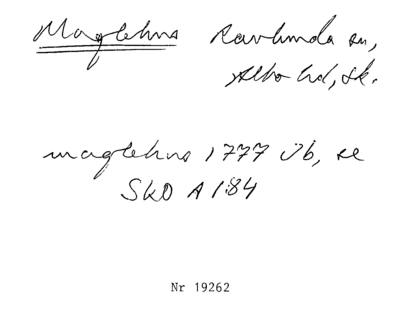 Maglehus Ravlunda sn,
Albo hd, Sk.
maglehus 1777 Ub, se
SkO A 1:84
Nr 19262